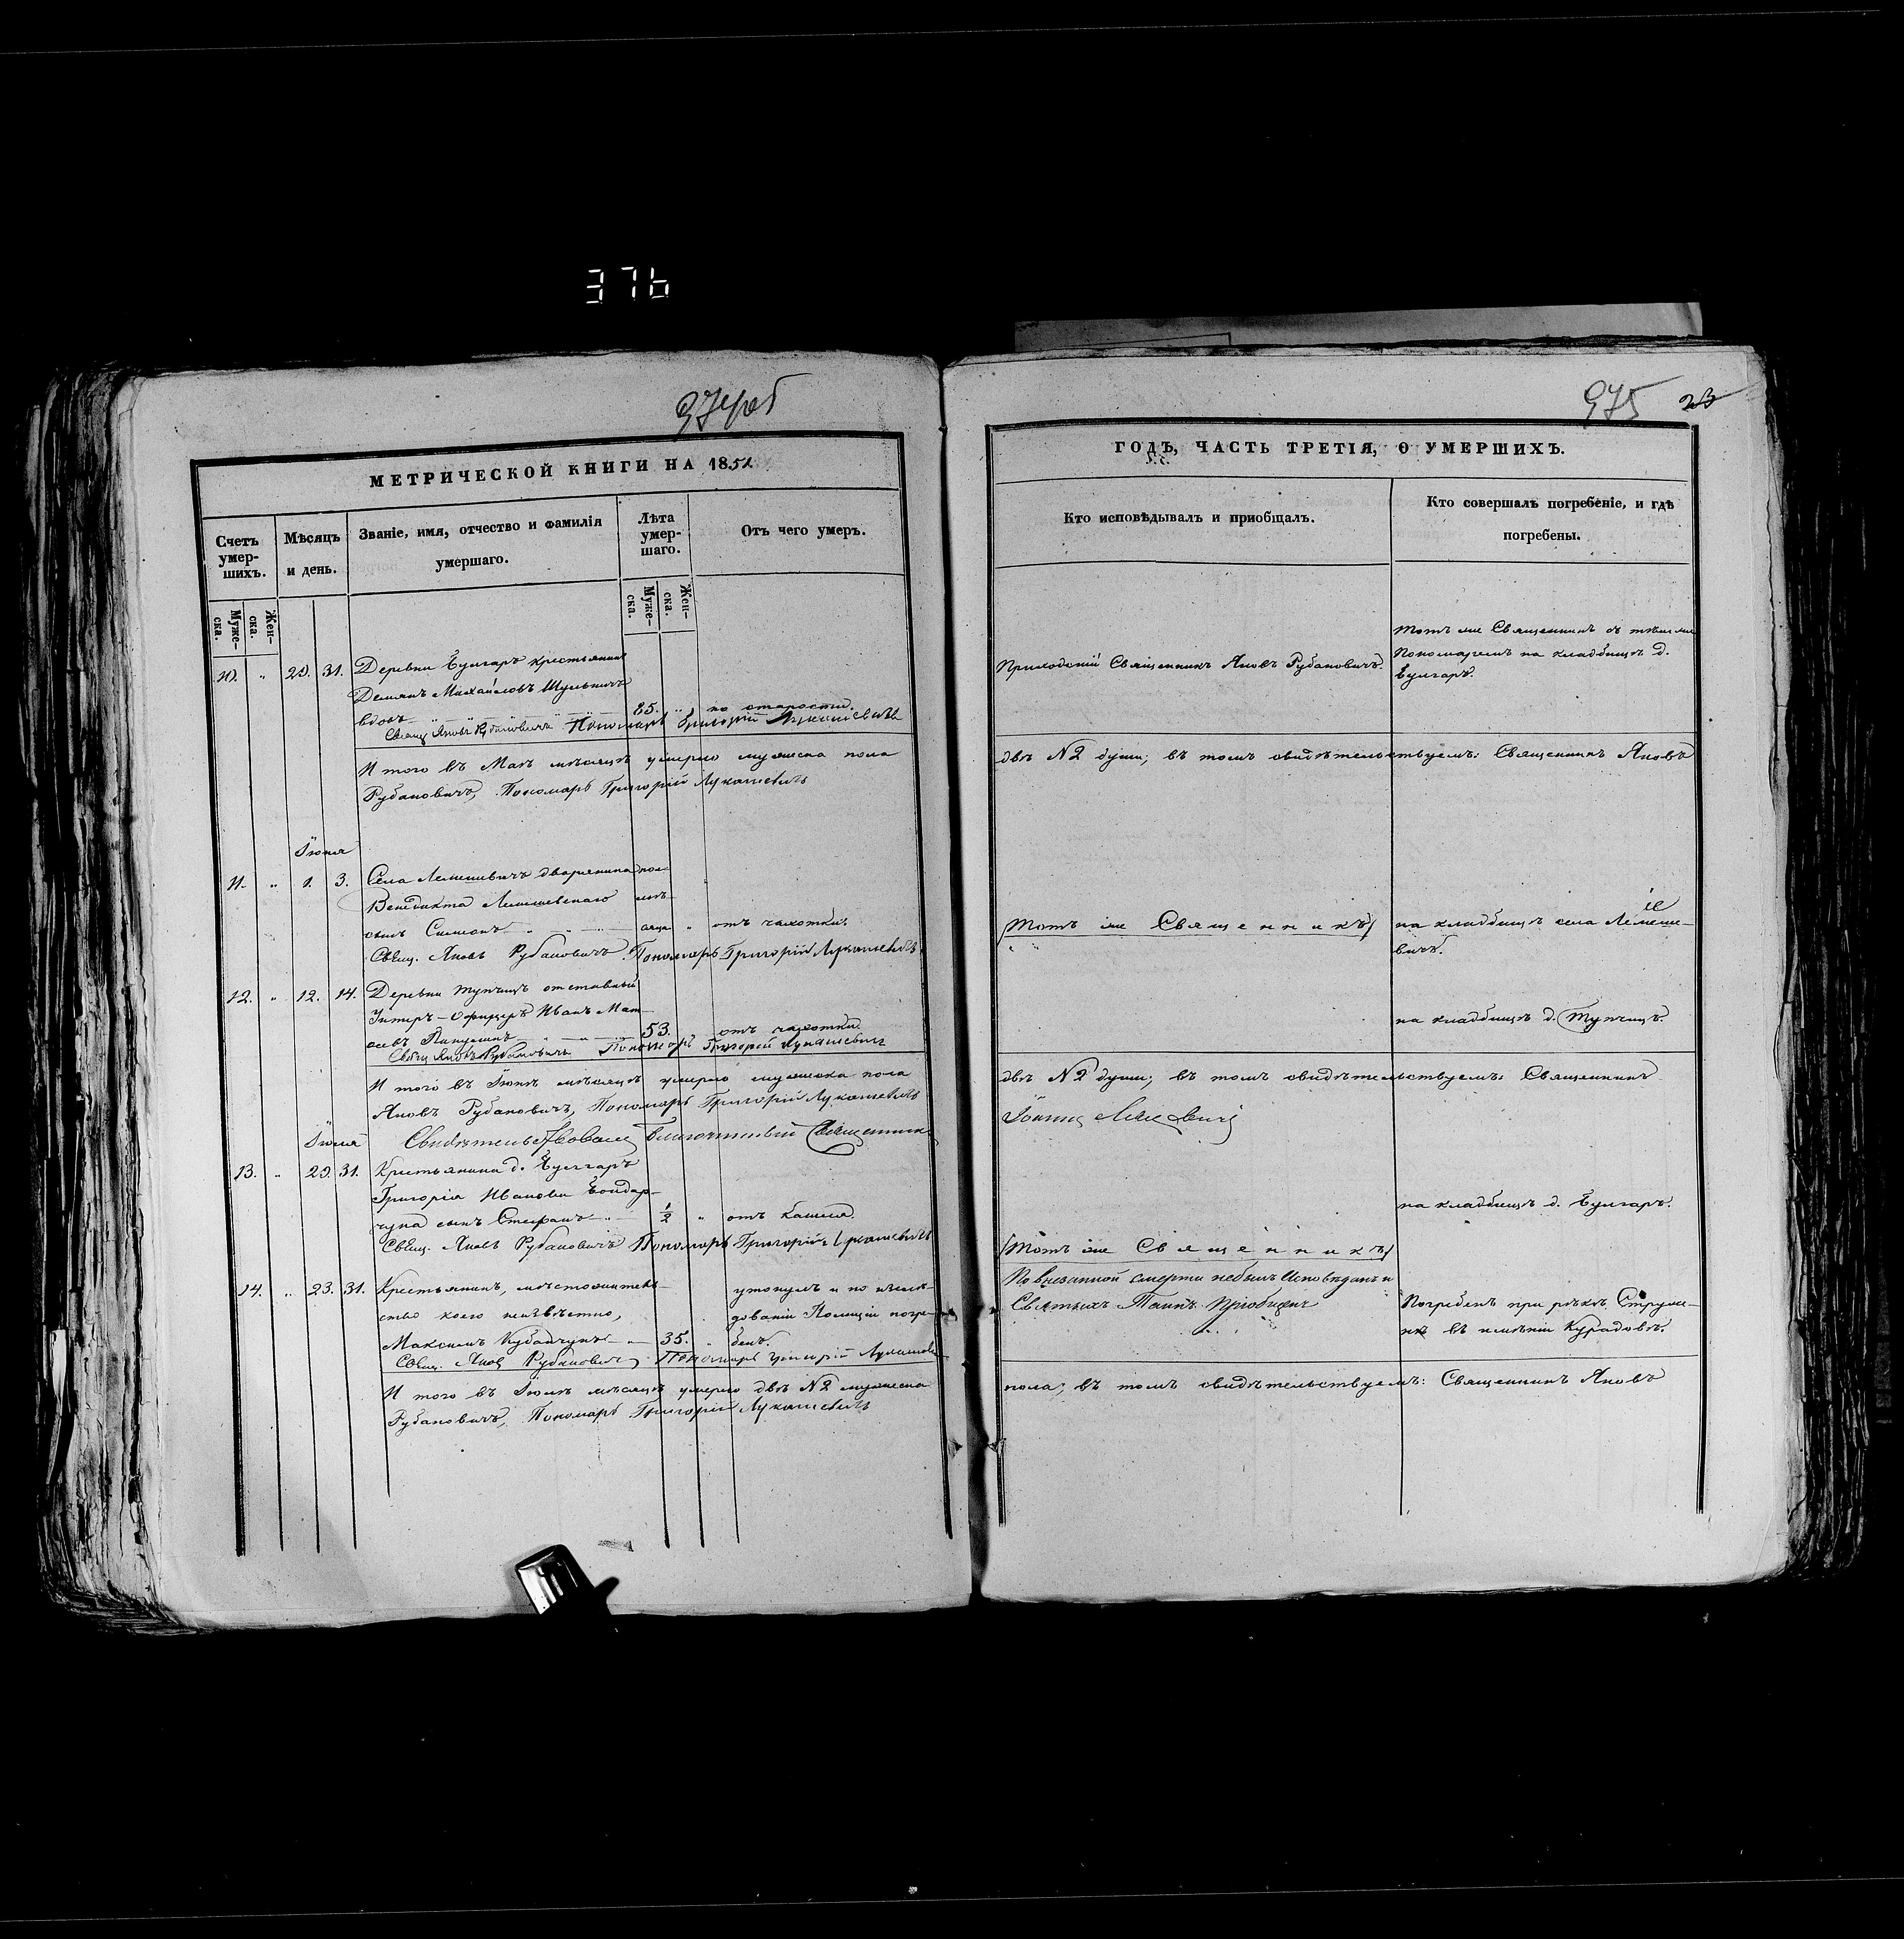 376
974об
МЕТРИЧЕСКОЙ КНИГИ НА 1851
Счетъ умер-шихъ.
Мѣсяцъ и день.
Званіе, имя, отчество и фамилія
умершаго.
Лѣта умер-шаго.
Отъ чего умеръ.
Муже-ска.
Жен-ска.
Муже-ска.
Жен-ска.
10. " 29. 31. Деревни Булгаръ крестьянинъ
Демянъ Михайловъ Шульничъ
вдовъ 85. " по старости.
Свящ. Яковъ Рубановичъ Пономарь Григорій Лукашевичъ
И того въ Маѣ мѣсяцѣ умерло мужеска пола
Рубановичъ, Пономарь Григорій Лукашевичъ
Іюня
11. " 1. 3. Села Лемешевичъ дворянина пол-
Венедикта Лемешевскаго мѣ-
сынъ Симеонъ сяца " отъ чахотки.
Свящ. Яковъ Рубановичъ. Пономарь Григорій Лукашевичъ
12. " 12. 14. Деревни Тупчицъ отставный
Унтеръ-Офицеръ Иванъ Мат-
53. " отъ чахотки.
Свящ. Яковъ Рубановичъ Пономарь Григорій Лукашевичъ
И того въ Іюнѣ мѣсяцѣ умерло мужеска пола
Яковъ Рубановичъ, Пономарь Григорій Лукашевичъ
Іюля
Благочинный Священникъ
13. " 29. 31. Крестьянина д. Булгаръ
Григорія Иванова Бондар-
чука сынъ Стефанъ 1/2 " отъ кашля.
Свящ. Яковъ Рубановичъ Пономарь Григорій Лукашевичъ
14. " 23. 31. Крестьянинъ, мѣстожитель-
ство коего неизвѣстно,
утонулъ и по изслѣ-
дованіи Полиціи погре-
Максимъ Кубайчукъ 35. " бенъ.
Свящ. Яковъ Рубановичъ Пономарь Григорій Лукашевичъ
И того въ Іюлѣ мѣсяцѣ умерло двѣ №2 мужеска
Рубановичъ, Пономарь Григорій Лукашевичъ
975 23
ГОДЪ, ЧАСТЬ ТРЕТІЯ, О УМЕРШИХЪ.
Кто исповѣдывалъ и приобщалъ.
Кто совершалъ погребеніе, и гдѣ
погребены.
Приходскій Священникъ Яковъ Рубановичъ.
Тотъ же Священникъ съ тѣмъ же
Пономаремъ на кладбищѣ д.
Булгаръ.
двѣ №2 души; въ томъ свидѣтельствуемъ: Священникъ Яковъ
Тотъ же Священникъ
на кладбищѣ села Лемеше-
вичъ.
на кладбищѣ д. Тупчицъ.
двѣ №2 души; въ томъ свидѣтельствуемъ: Священникъ
на кладбищѣ д. Булгаръ.
Тотъ же Священникъ
По внезапной смерти небылъ Исповѣданъ и
Святыхъ Таинъ Приобщенъ
Погребенъ при рѣкѣ Струме-
нѣ въ имѣніи Курадовѣ.
пола; въ томъ свидѣтельствуемъ: Священникъ Яковъ